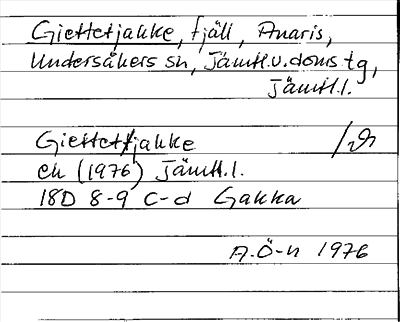 Giettetjakke, fjäll, Anaris,
Undersåkers sn, Jämtl.v.doms tg,
Jämtl.l.
Giettetjakke
ek (1976) Jämtl.l.
18D 8-9 c-d Gakka
A.Ö-n 1976